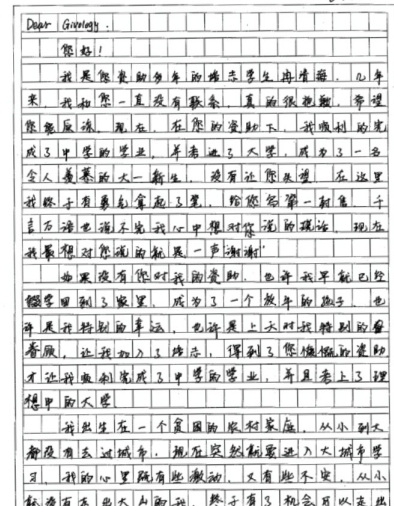 Dear Givology:
您好!
我是您资助多年的培志学生冉情莓。几年
来,我和您一直没有联系,真的很抱歉,希望
您能原谅。现在,在您的资助下,我顺利的完
成了中学的学业,并考进了大学,成为了一名
令人羡慕的大一新生,没有让您失望。在这里
我终于有勇气拿起了笔,给您写第一封信,千
言万语也说不完我心中想对您说的谎话,现在
我最想对您说的就是一声"谢谢"
如果没有你对我的资助,也许我早就已经
辍学回到了家里,成为了一个放牛的孩子,也
许是我特别的幸运,也许是上天对我特别的
眷顾,让我加入了培志,得到了您慷慨的资助
才让我顺利完成了中学的学业,并且考上了理
想中的大学
我出生在一个贫困的农村家庭,从小到大
都没有去过城市,现在突然就要进入大城市学
习,我的心里既有些激动,又有些不安,从小
就没有走出大山的我,终于有了机会可以走出